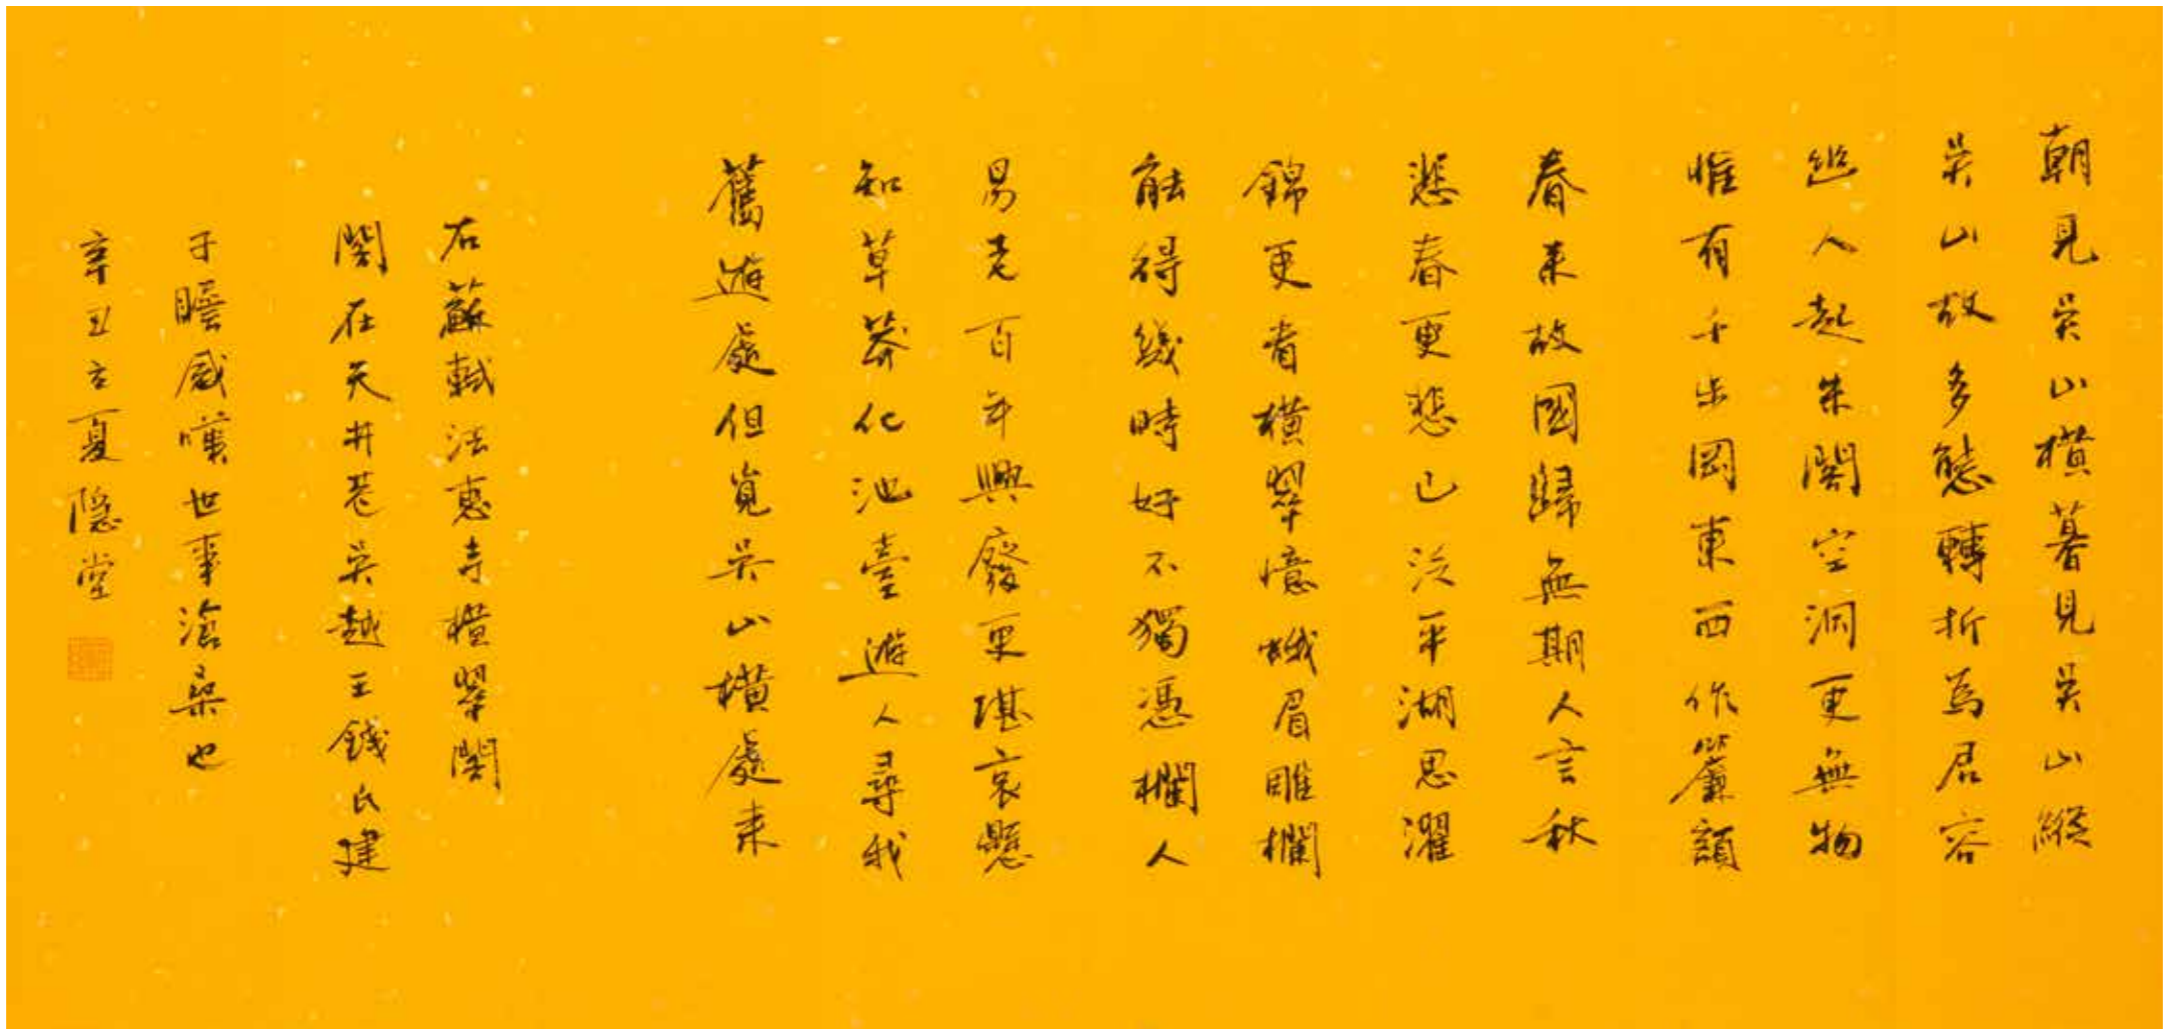 朝見吳山橫暮見吳山縱
吳山故多態轉折為君容
幽人起朱閣空洞更無物
惟有千步岡東西作簾額
春來故國歸無期人言秋
悲春更悲已泛平湖思濯
錦更看橫翠憶峨眉雕欄
能得幾時好不獨憑欄人
易老百年興廢更堪哀懸
知草莽化池臺遊人尋我
舊遊處但覓吳山橫處來
右蘇軾法惠寺橫翠閣
閣在天井巷吳越王錢氏建
子瞻感嘆世事滄桑也
辛丑立夏隱堂